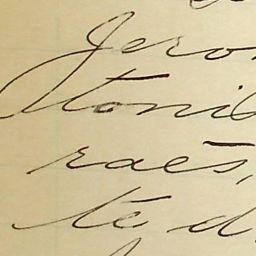 Jero
toni
raes,
te d